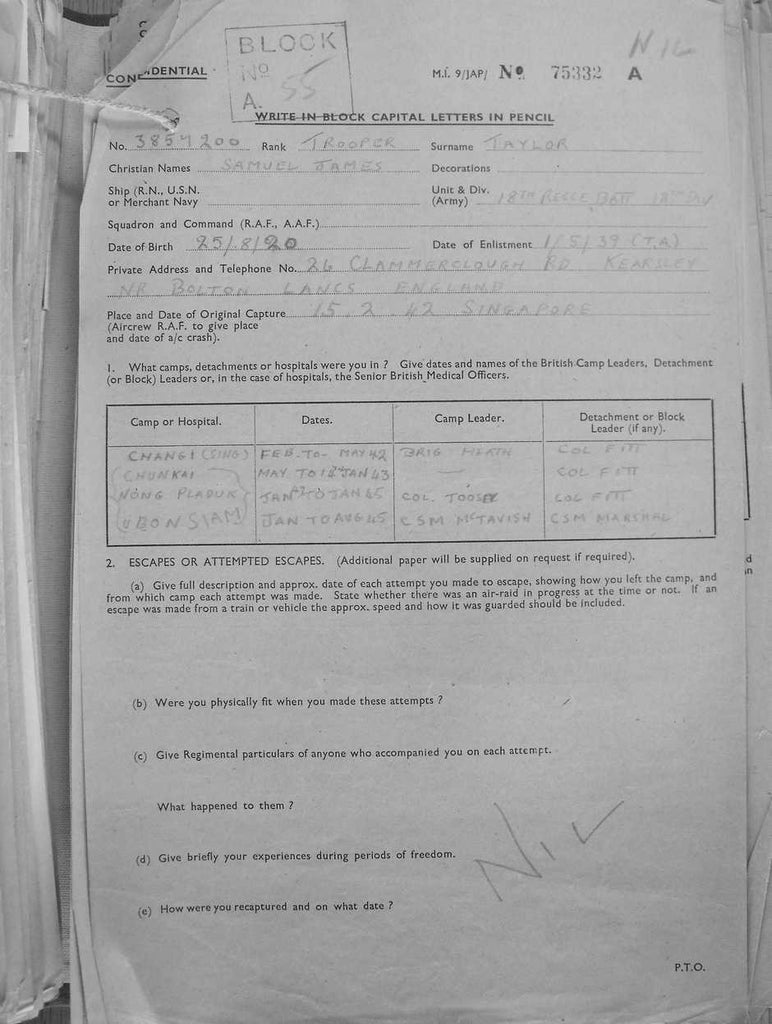 BLOCK
No
A. 55
NIL
CONFIDENTIAL
M.I. 9/JAP/ No. 75332 A
WRITE IN BLOCK CAPITAL LETTERS IN PENCIL
No. 3857200 Rank TROOPER Surname TAYLOR
Christian Names SAMUEL JAMES Decorations
Ship (R.N., U.S.N. Unit & Div.
or Merchant Navy (Army) 18TH RECCE BATT 18TH DIV
Squadron and Command (R.A.F., A.A.F.)
Date of Birth 25/8/20 Date of Enlistment 1/5/39 (T.A)
Private Address and Telephone No. 26 CLAMMERCLOUGH RD KEARSLEY
NR BOLTON LANCS ENGLAND
Place and Date of Original Capture 15.2.42 SINGAPORE
(Aircrew R.A.F. to give place
and date of a/c crash).
1. What camps, detachments or hospitals were you in ? Give dates and names of the British Camp Leaders, Detachment
(or Block) Leaders or, in the case of hospitals, the Senior British Medical Officers.
Camp or Hospital. Dates. Camp Leader. Detachment or Block
Leader (if any).
CHANGI (SING) FEB. TO- MAY 42 BRIG HEATH COL FITT
CHUNKAI MAY TO JAN 43 — COL FITT
NONG PLADUK JAN TO JAN 45 COL. TOOSEY COL FITT
UBON SIAM JAN TO AUG 45 CSM McTAVISH CSM MARSHAL
2. ESCAPES OR ATTEMPTED ESCAPES. (Additional paper will be supplied on request if required).
(a) Give full description and approx. date of each attempt you made to escape, showing how you left the camp, and
from which camp each attempt was made. State whether there was an air-raid in progress at the time or not. If an
escape was made from a train or vehicle the approx. speed and how it was guarded should be included.
(b) Were you physically fit when you made these attempts ?
(c) Give Regimental particulars of anyone who accompanied you on each attempt.
What happened to them ?
(d) Give briefly your experiences during periods of freedom.
NIL
(e) How were you recaptured and on what date ?
P.T.O.
d
in